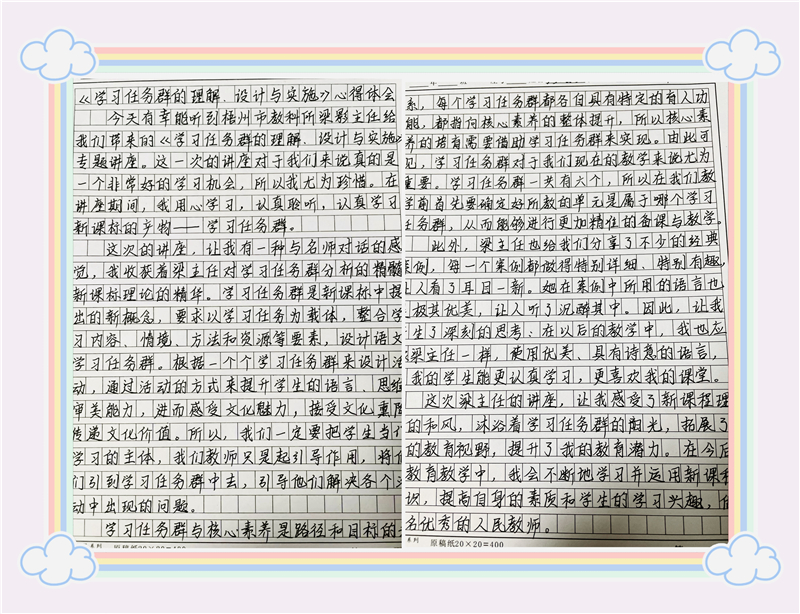 《学习任务群的理解、设计与实施》心得体会
今天有幸能听到梧州市教科所梁影主任给
我们带来的《学习任务群的理解、设计与实施》
专题讲座。这一次的讲座对于我们来说真的是
一个非常好的学习机会，所以我尤为珍惜。在
讲座期间，我用心学习，认真聆听，认真学习
新课标的产物——学习任务群。
这次的讲座，让我有一种与名师对话的感
觉，我收获着梁主任对学习任务群分析的精髓
新课标理论的精华。学习任务群是新课标中提
出的新概念，要求以学习任务为载体，整合学
习内容、情境、方法和资源等要素，设计语文
学习任务群。根据一个个学习任务群来设计活
动，通过活动的方式来提升学生的语言、思维
审美能力，进而感受文化魅力，接受文化熏陶
传递文化价值。所以，我们一定要把学生当作
学习的主体，我们教师只是起引导作用，将他
们引到学习任务群中去，引导他们解决各个
动中出现的问题。
学习任务群与核心素养是路径和目标的
系，每个学习任务群都各自具有特定的育人功
能，都指向核心素养的整体提升，所以核心素
养的培育需要借助学习任务群来实现。由此可
见，学习任务群对于我们现在的教学来说尤为
重要。学习任务群一共有六个，所以在我们教
学前首先要确定好所教的单元是属于哪个学习
任务群，从而能够进行更加精准的备课与教学。
此外，梁主任也给我们分享了不少的经典
案例，每一个案例都做得特别详细、特别有趣，
让人看了耳目一新。她在案例中所用的语言也
极其优美，让人听了沉醉其中。因此，让我
生了深刻的思考、在以后的教学中，我也应
梁主任一样，使用优美、具有诗意的语言，
我的学生能更认真学习，更喜欢我的课堂。
这次梁主任的讲座，让我感受了新课程理
的和风，沐浴着学习任务群的阳光，拓展了
的教育视野，提升了我的教育潜力。在今后
教育教学中，我会不断地学习并运用新课程
识，提高自身的素质和学生的学习兴趣，做
名优秀的人民教师。
原稿纸20×20=400
原稿纸20×20=400